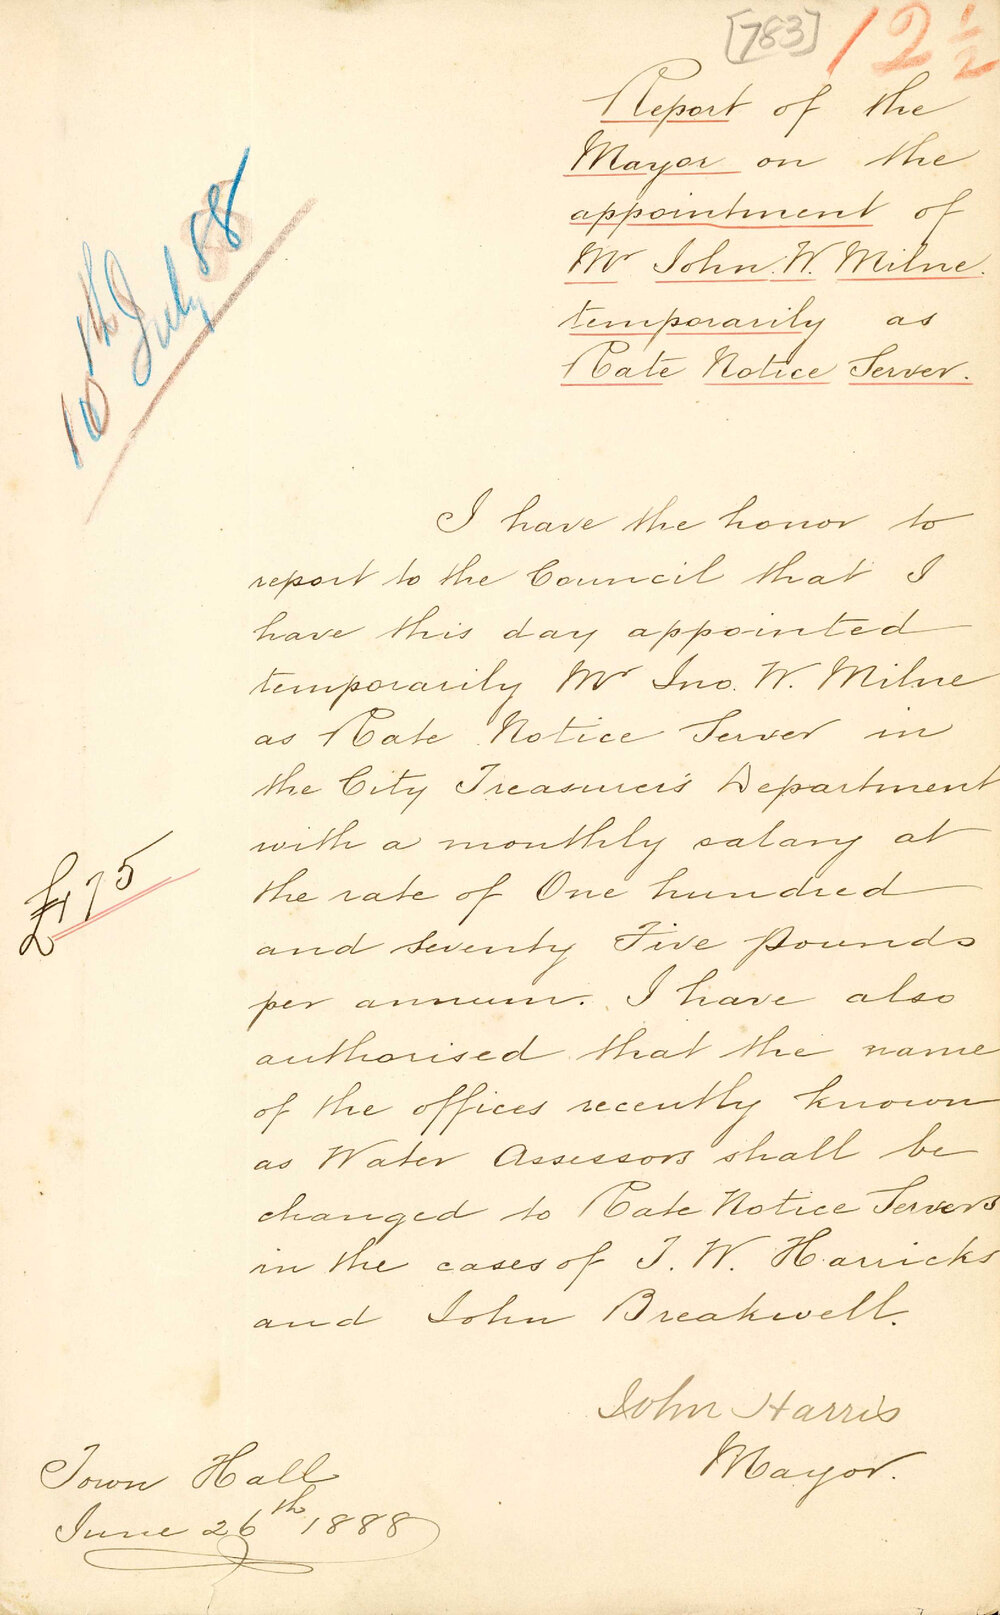 [783] 12 1/2
Report of the
Mayor on the
appointment of
Mr John. W. Milne.
temporarily as
Rate Notice Server.
10th July 88
I have the honor to
report to the Council that I
have this day appointed
temporarily Mr Jno. W. Milne
as Rate Notice Server in
the City Treasurer's Department
with a monthly salary at
the rate of One hundred
and Seventy Five Pounds
£175
per annum. I have also
authorised that the name
of the offices recently known
as Water Assessors shall be
changed to Rate Notice Servers
in the cases of T. W. Harricks
and John Breakwell.
John Harris
Mayor.
Town Hall
June 26th 1888